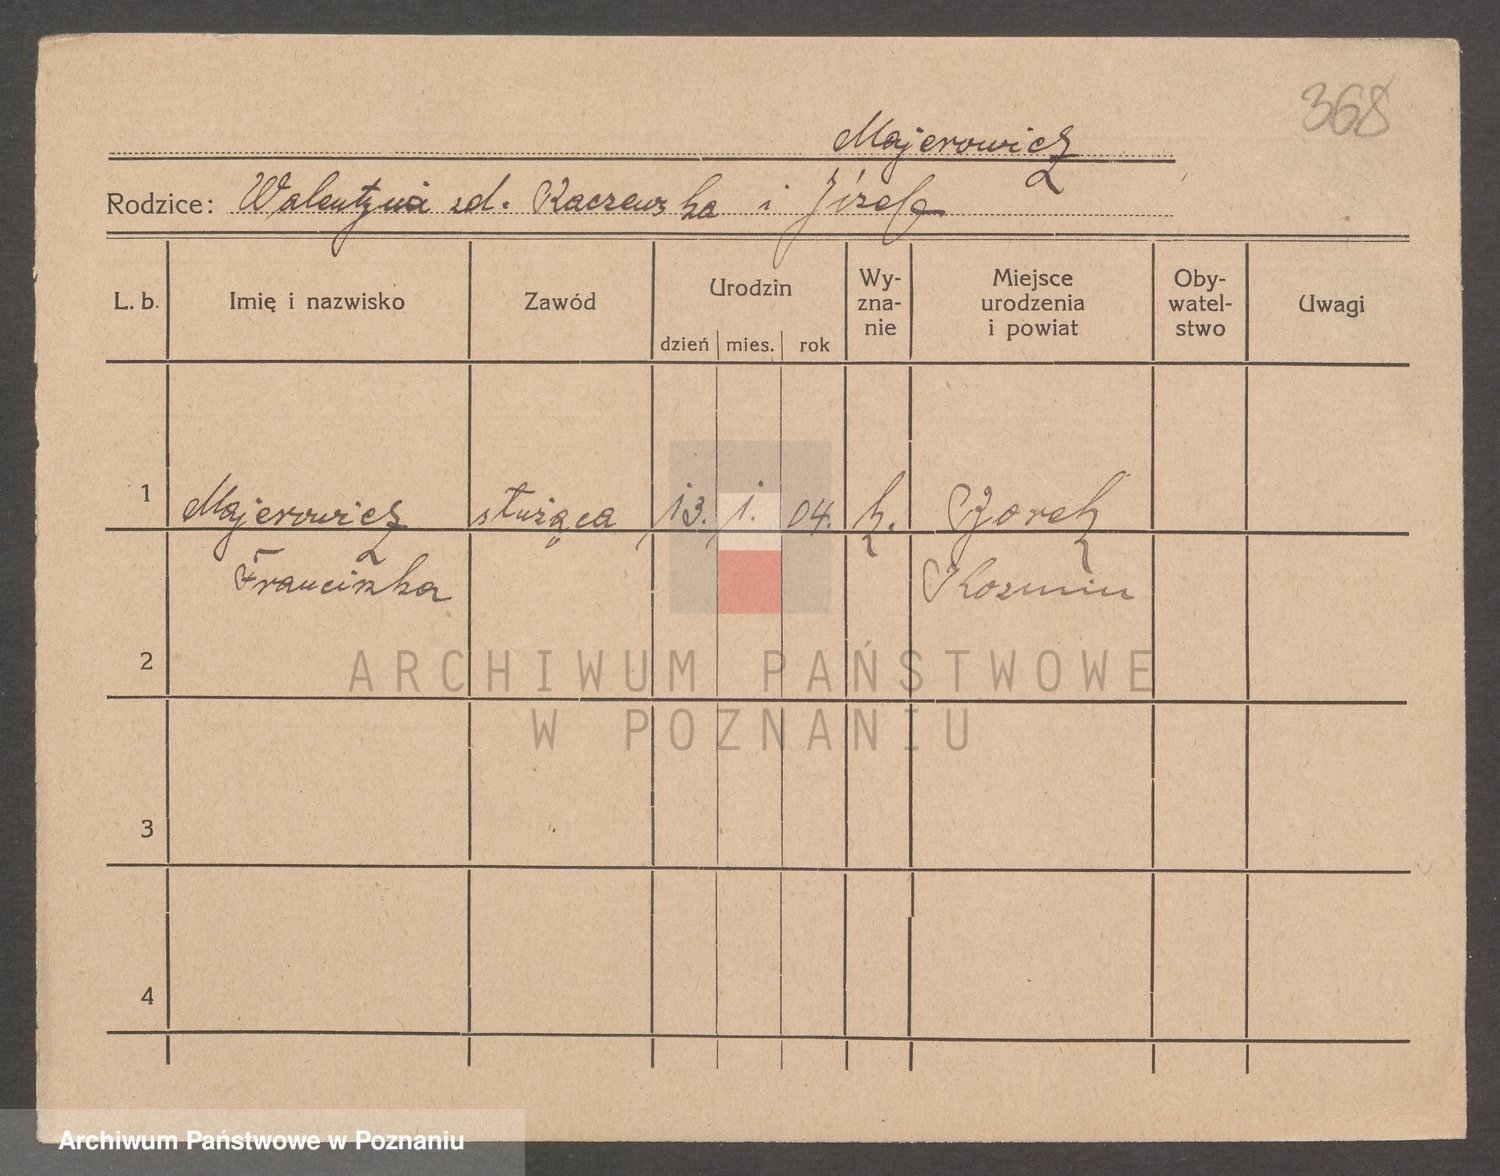 368
Majerowicz
Rodzice: Walentyna zd. Kaczewska i Józefa
L. b. Imię i nazwisko Zawód Urodzin dzień mies. rok Wy-zna-nie Miejsce urodzenia i powiat Oby-watel-stwo Uwagi
1 Majerowicz służąca 13. 1. 04. k. Borek
Franciszka Kozmin
2
ARCHIWUM PAŃSTWOWE
W POZNANIU
3
4
Archiwum Państwowe w Poznaniu